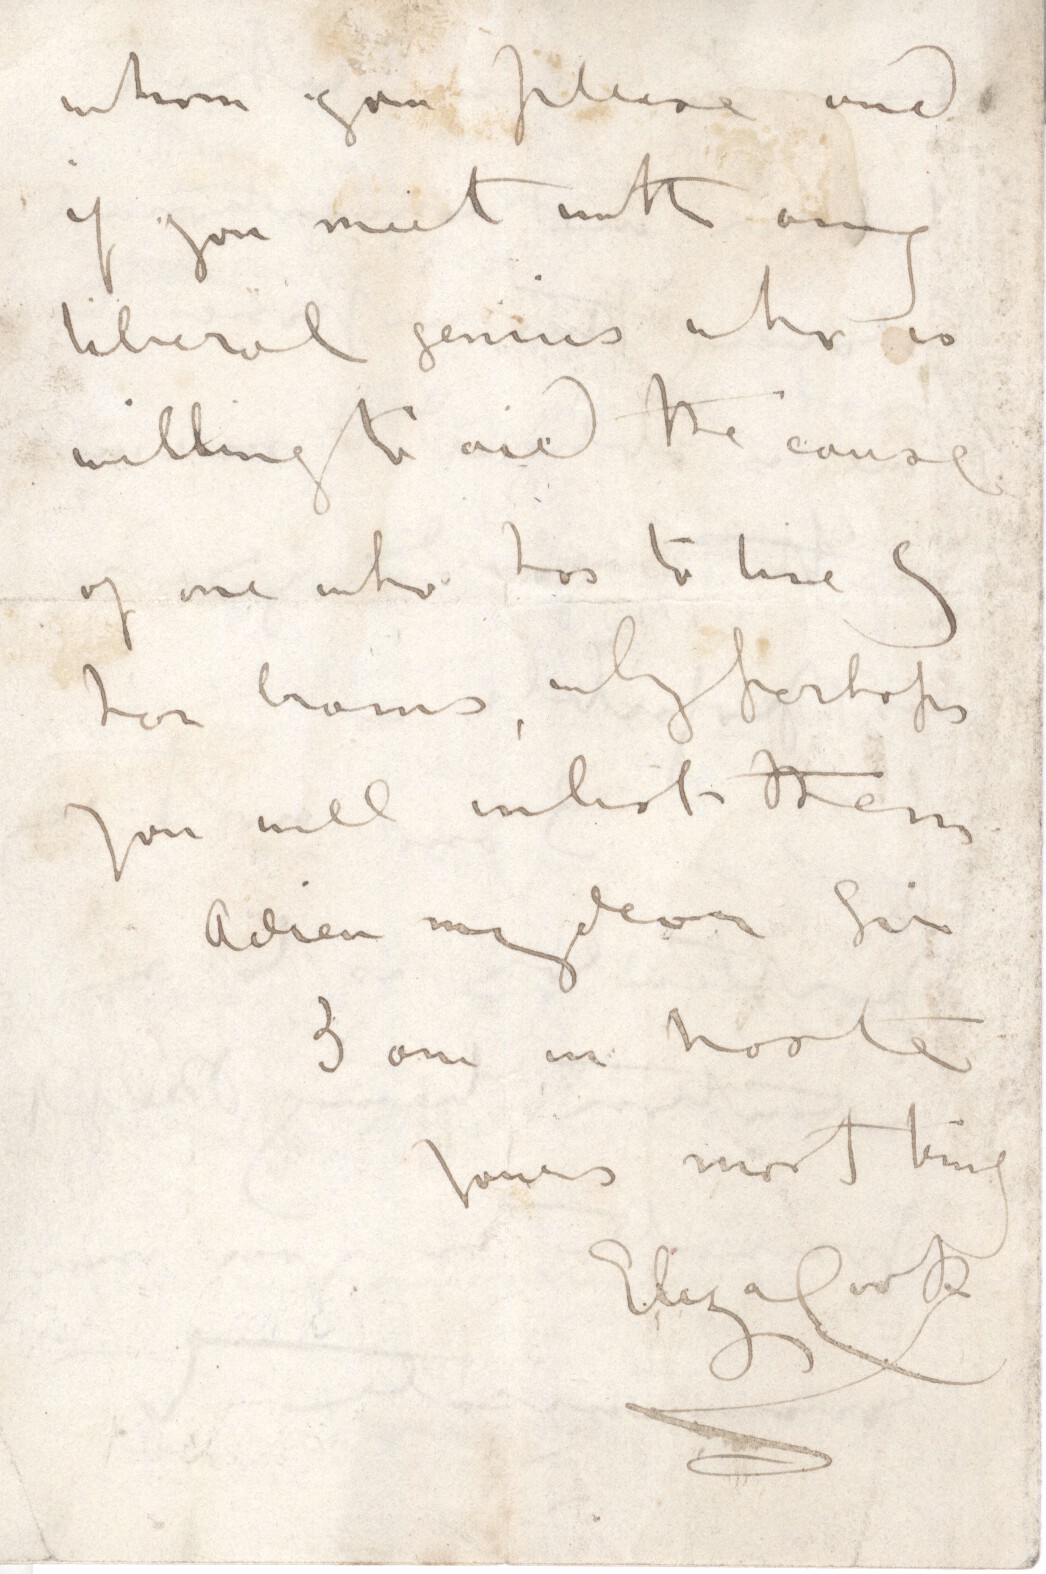 whom you please and
if you meet with any
liberal genius who is
willing to aid the cause
of one who has to live by
her brains, why perhaps
you will enlist them
Adieu my dear Sir
I am in haste
yours most truly
Eliza Cook